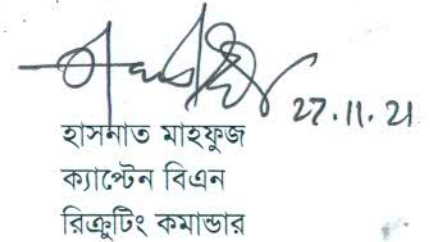 27.11.21
হাসনাত মাহফুজ
ক্যাপ্টেন বিএন
রিক্রুটিং কমান্ডার